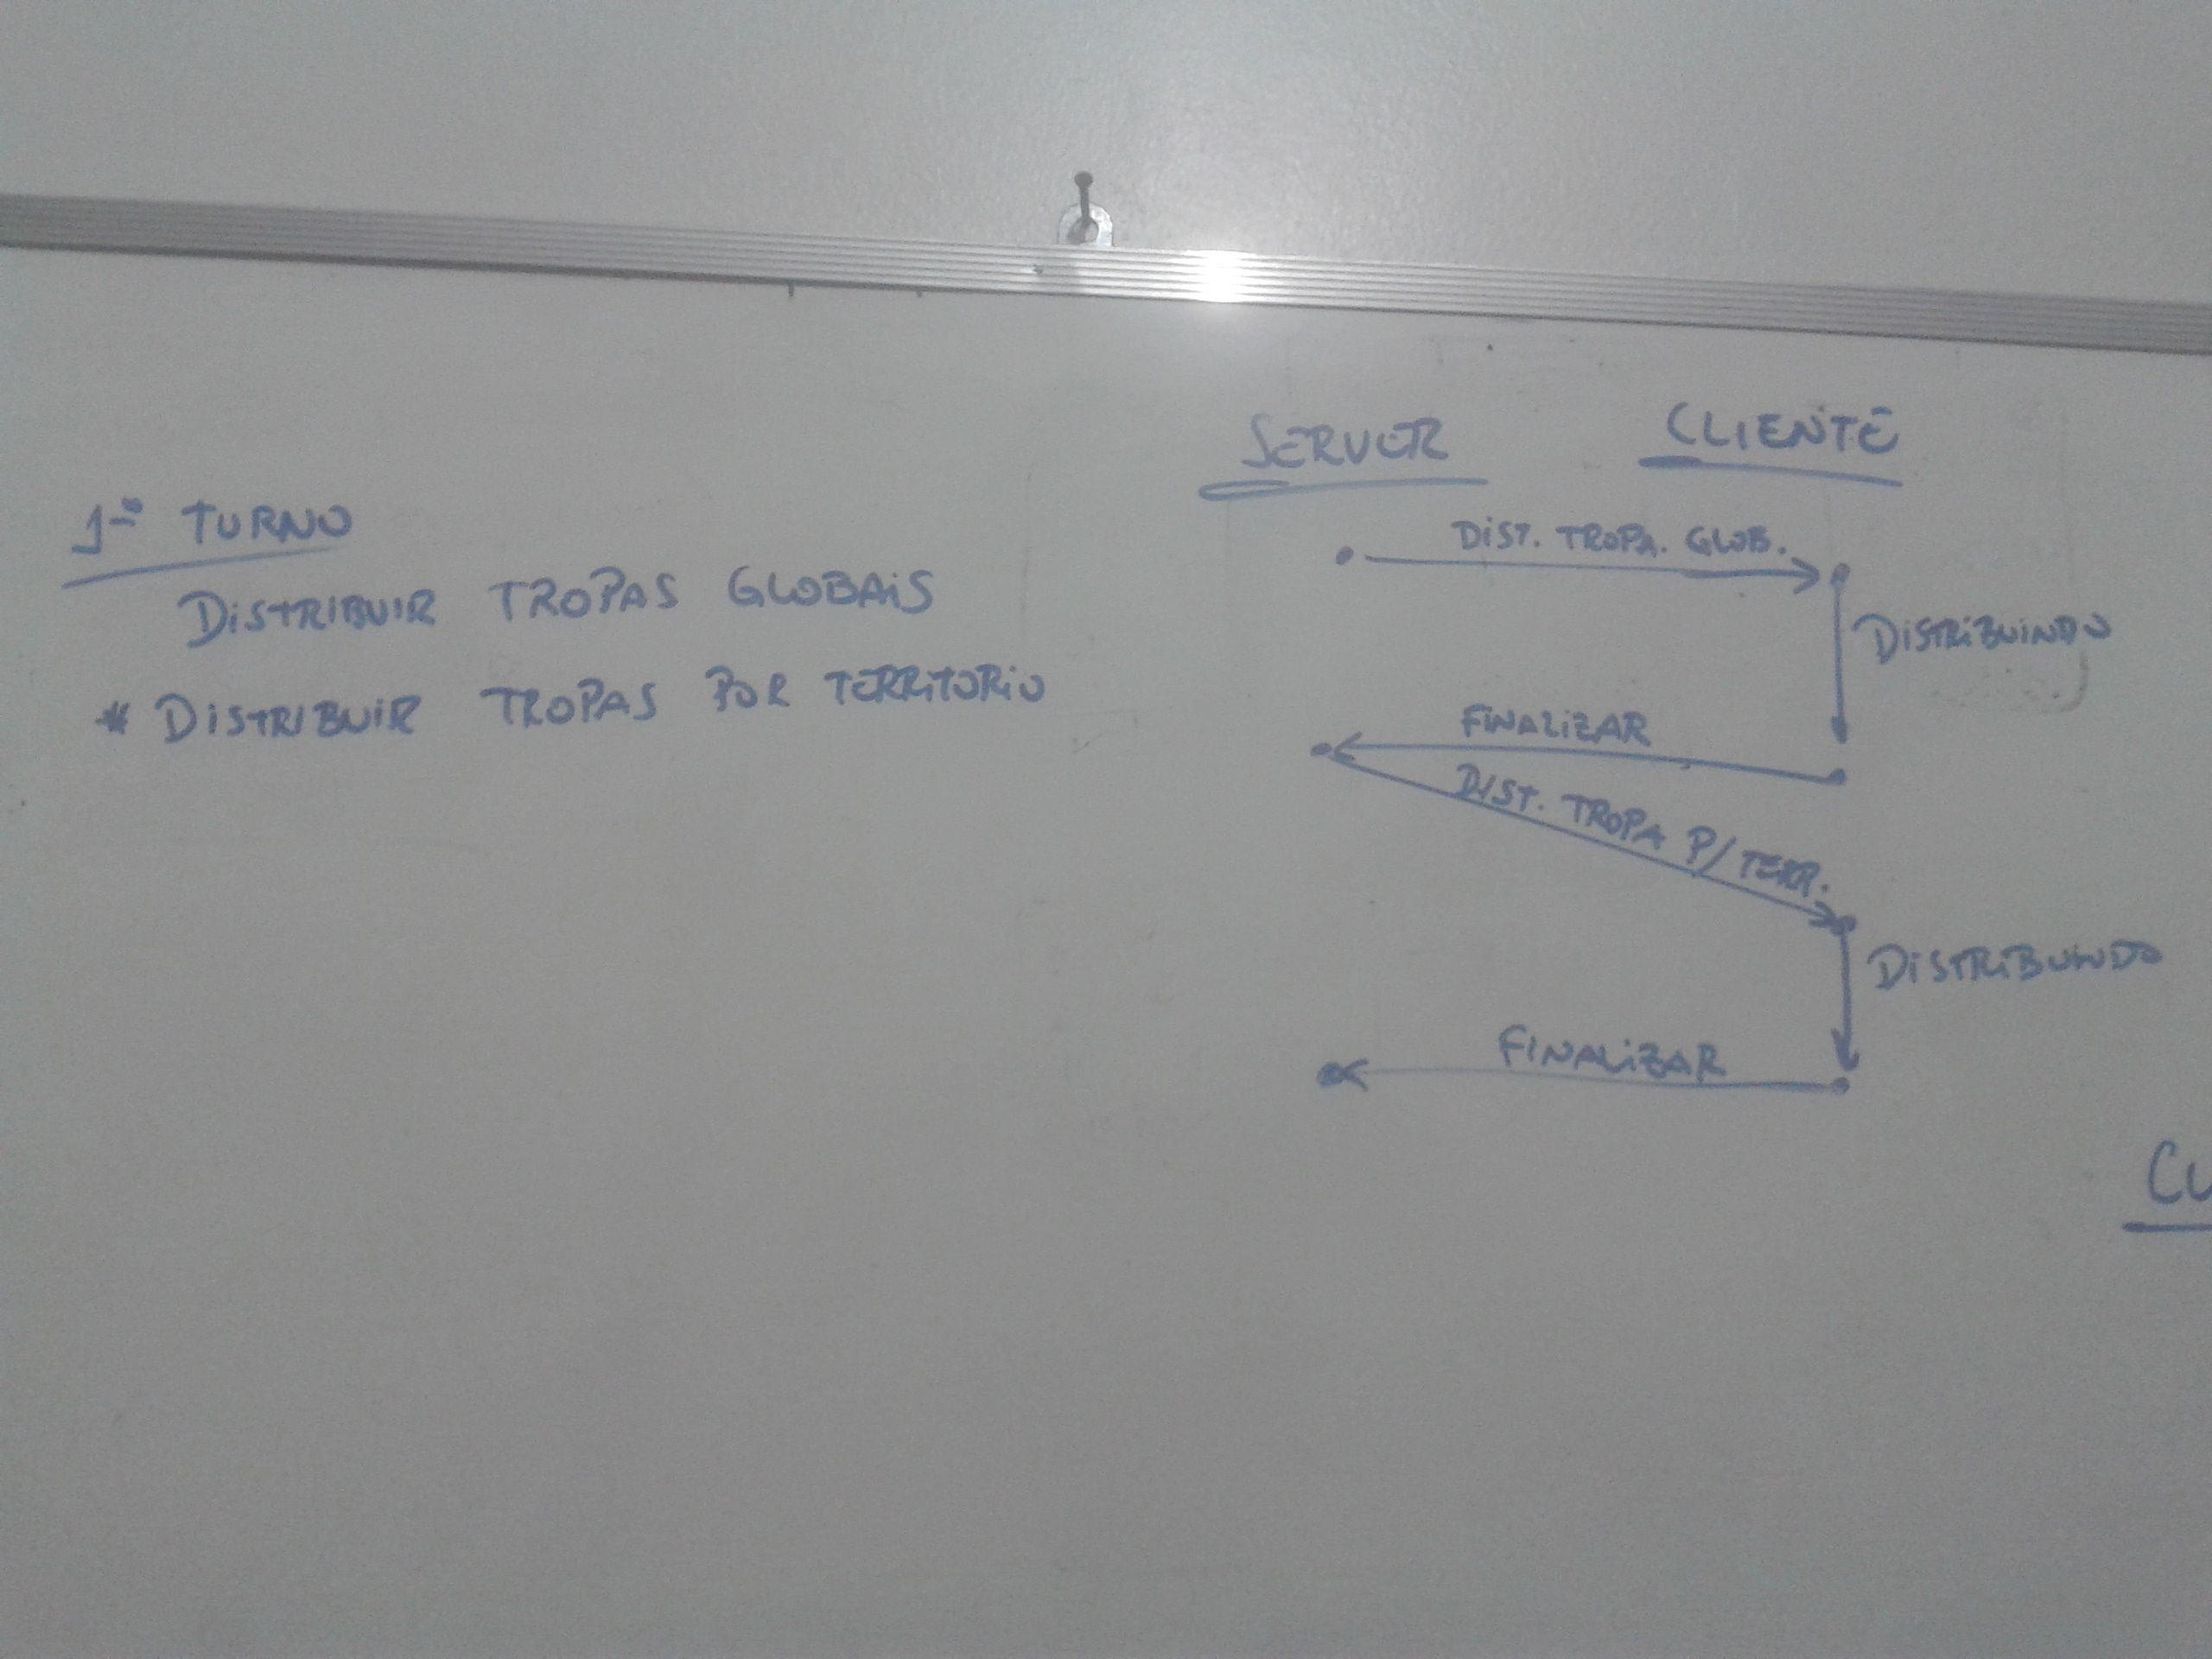 1º TURNO
DISTRIBUIR TROPAS GLOBAIS
* DISTRIBUIR TROPAS POR TERRITORIO
SERVER CLIENTE
DIST. TROPA. GLOB.
DISTRIBUINDO
FINALIZAR
DIST. TROPA P/ TERR.
DISTRIBUINDO
FINALIZAR